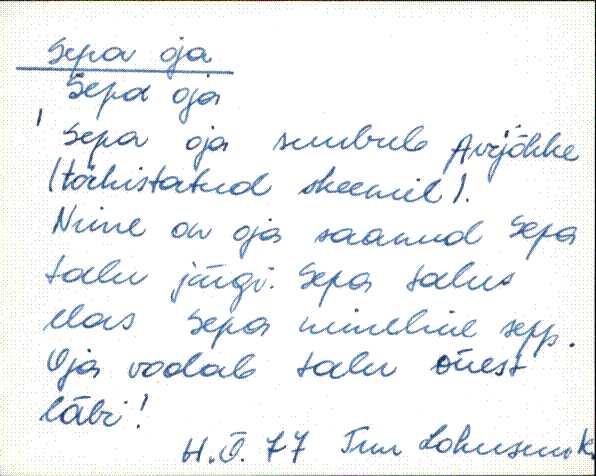 Sepa oja
Sepa oja
Sepa oja suubub Avijõkke
(tähistatud skeemil).
Nime on oja saanud Sepa
talu järgi. Sepa talus
elas Sepa nimeline sepp.
Oja voolab talu õuest
läbi!
H.Ü. 77